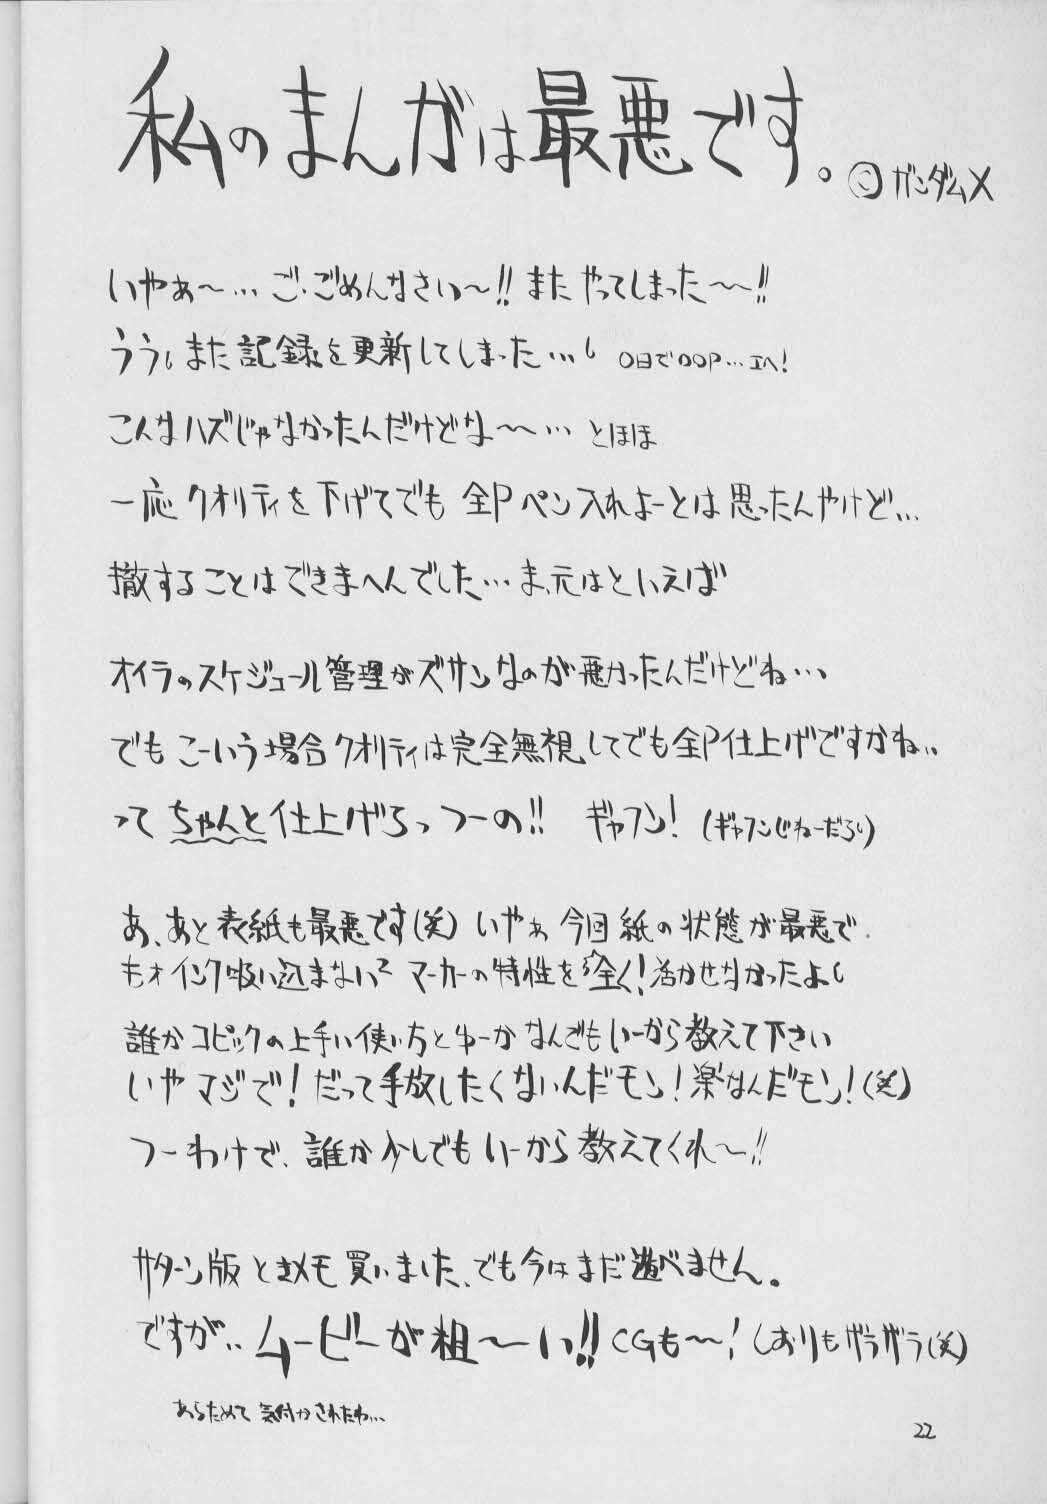 私のまんがは最悪です。©ガンダムX
いやぁ～…ご・ごめんなさい～!! また やってしまった～～!!
うう。また記録を更新してしまった…。 0日で00P…エヘ!
こんなハズじゃなかったんだけどな～～… とほほ
一応 クオリティを下げてでも 全Pペン入れよーとは思ったんやけど…
撤することはできまへんでした…ま、元はといえば
オイラのスケジュール管理がズサンなのが悪かったんだけどね…
でも こーいう場合クオリティは完全無視してでも全P仕上げですかね..
って ちゃんと仕上げろっつーの!! ギャフン! (ギャフンじねーだろい)
あ、あと表紙も最悪です(笑) いやぁ 今回紙の状態が最悪で
もォインク吸い込まない² マーカーの特性を全く!活かせなかったよ。
誰かコピックの上手い使い方とゆーかなんでもいーから教えて下さい
いやマジで! だって手放したくないんだモン! 楽なんだモン! (笑)
つーわけで、誰か少しでもいーから教えてくれ～!!
サターン版ときメモ買いました、でも今はまだ遊べません。
ですが.. ムービーが粗～い!! CGも～～! しおりもザラザラ(笑)
あらためて気付かされたわ…
22